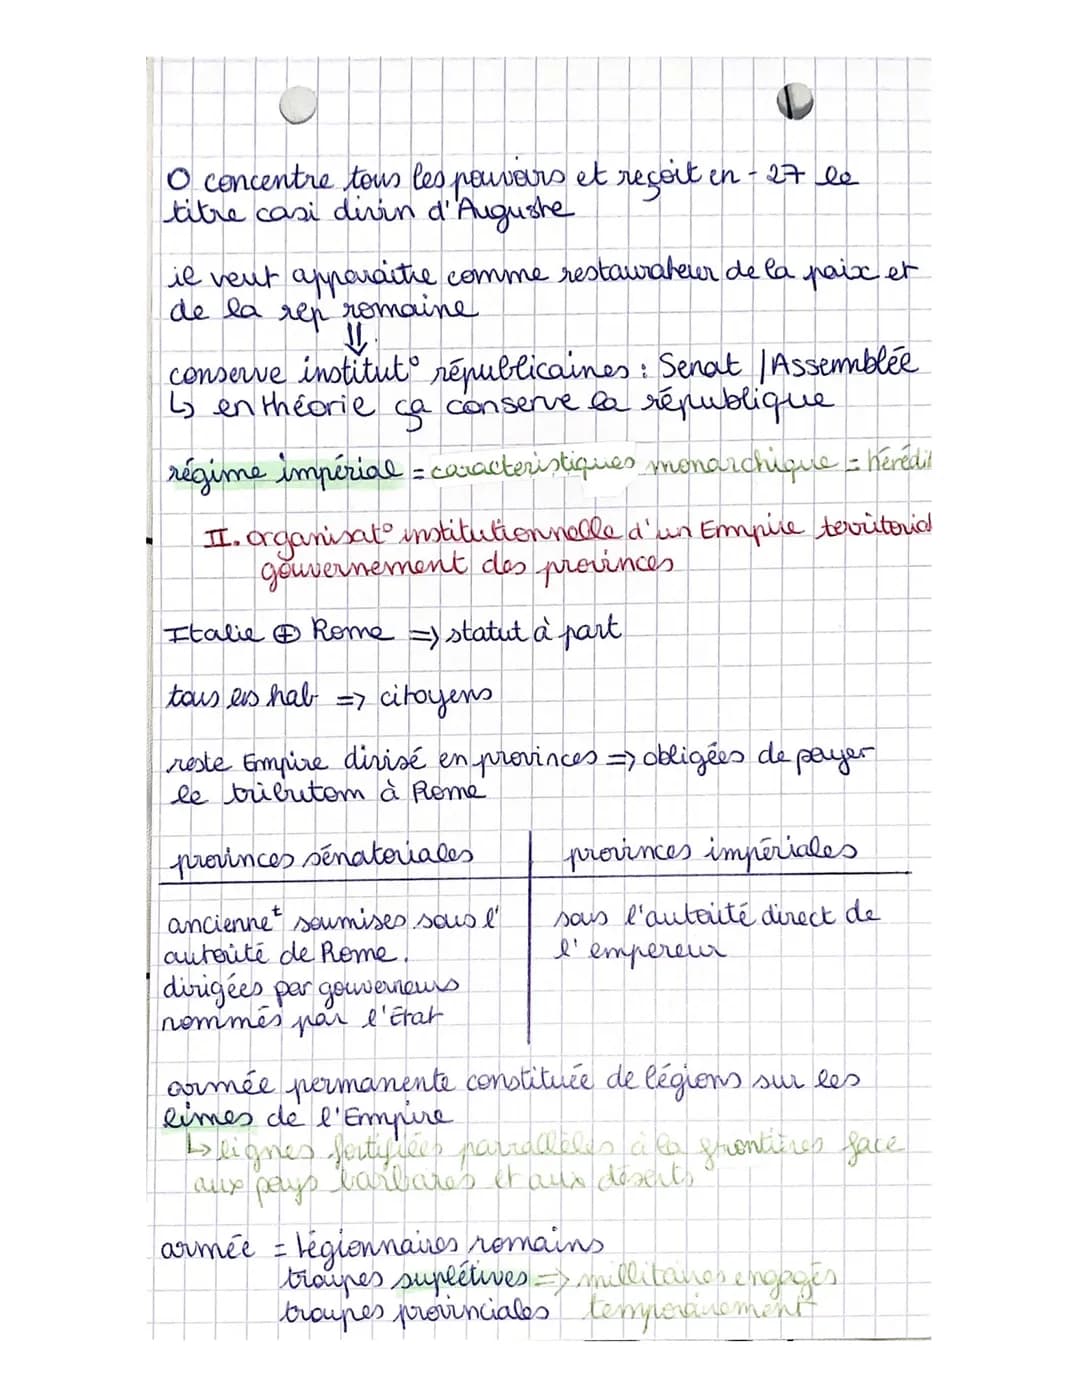 O concentre tous les pouvoirs et reçoit en - 27 le
titre casi divin d'Auguste
il veut apparaitre comme restaurateur de la paix et
de la rep romaine
⇓
conserve institut° républicaines : Senat / Assemnblée
↳ en théorie ça conserve la république
régime impérial = caracteristiques monarchique = hérédit
II. organisat° institutionnelle d'un Empire territorial
gouvernement des provinces
Italie ⊕ Rome => statut à part
tous les hab => citoyens
reste Empire divisé en provinces => obligées de payer
le tributom à Rome
provinces sénatoriales | provinces impériales
anciennet soumises sous l'
autorité de Rome.
dirigées par gouverneurs
nommés par l'État
sous l'autorité direct de
l'empereur
armée permanente constituée de légions sur les
limes de l'Empire
↳ lignes fortifiées parrallèles à la frontières face
aux pays barbares et aux déserts
armée = légionnaires romains
troupes suplétives => millitaires engagés
troupes provinciales temporairement